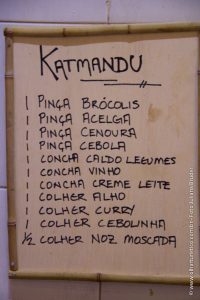 KATMANDU
1 PINÇA BRÓCOLIS
1 PINÇA ACELGA
1 PINÇA CENOURA
1 PINÇA CEBOLA
1 CONCHA CALDO LEGUMES
1 CONCHA VINHO
1 CONCHA CREME LEITE
1 COLHER ALHO
1 COLHER CURRY
1 COLHER CEBOLINHA
1/2 COLHER NOZ MOSCADA